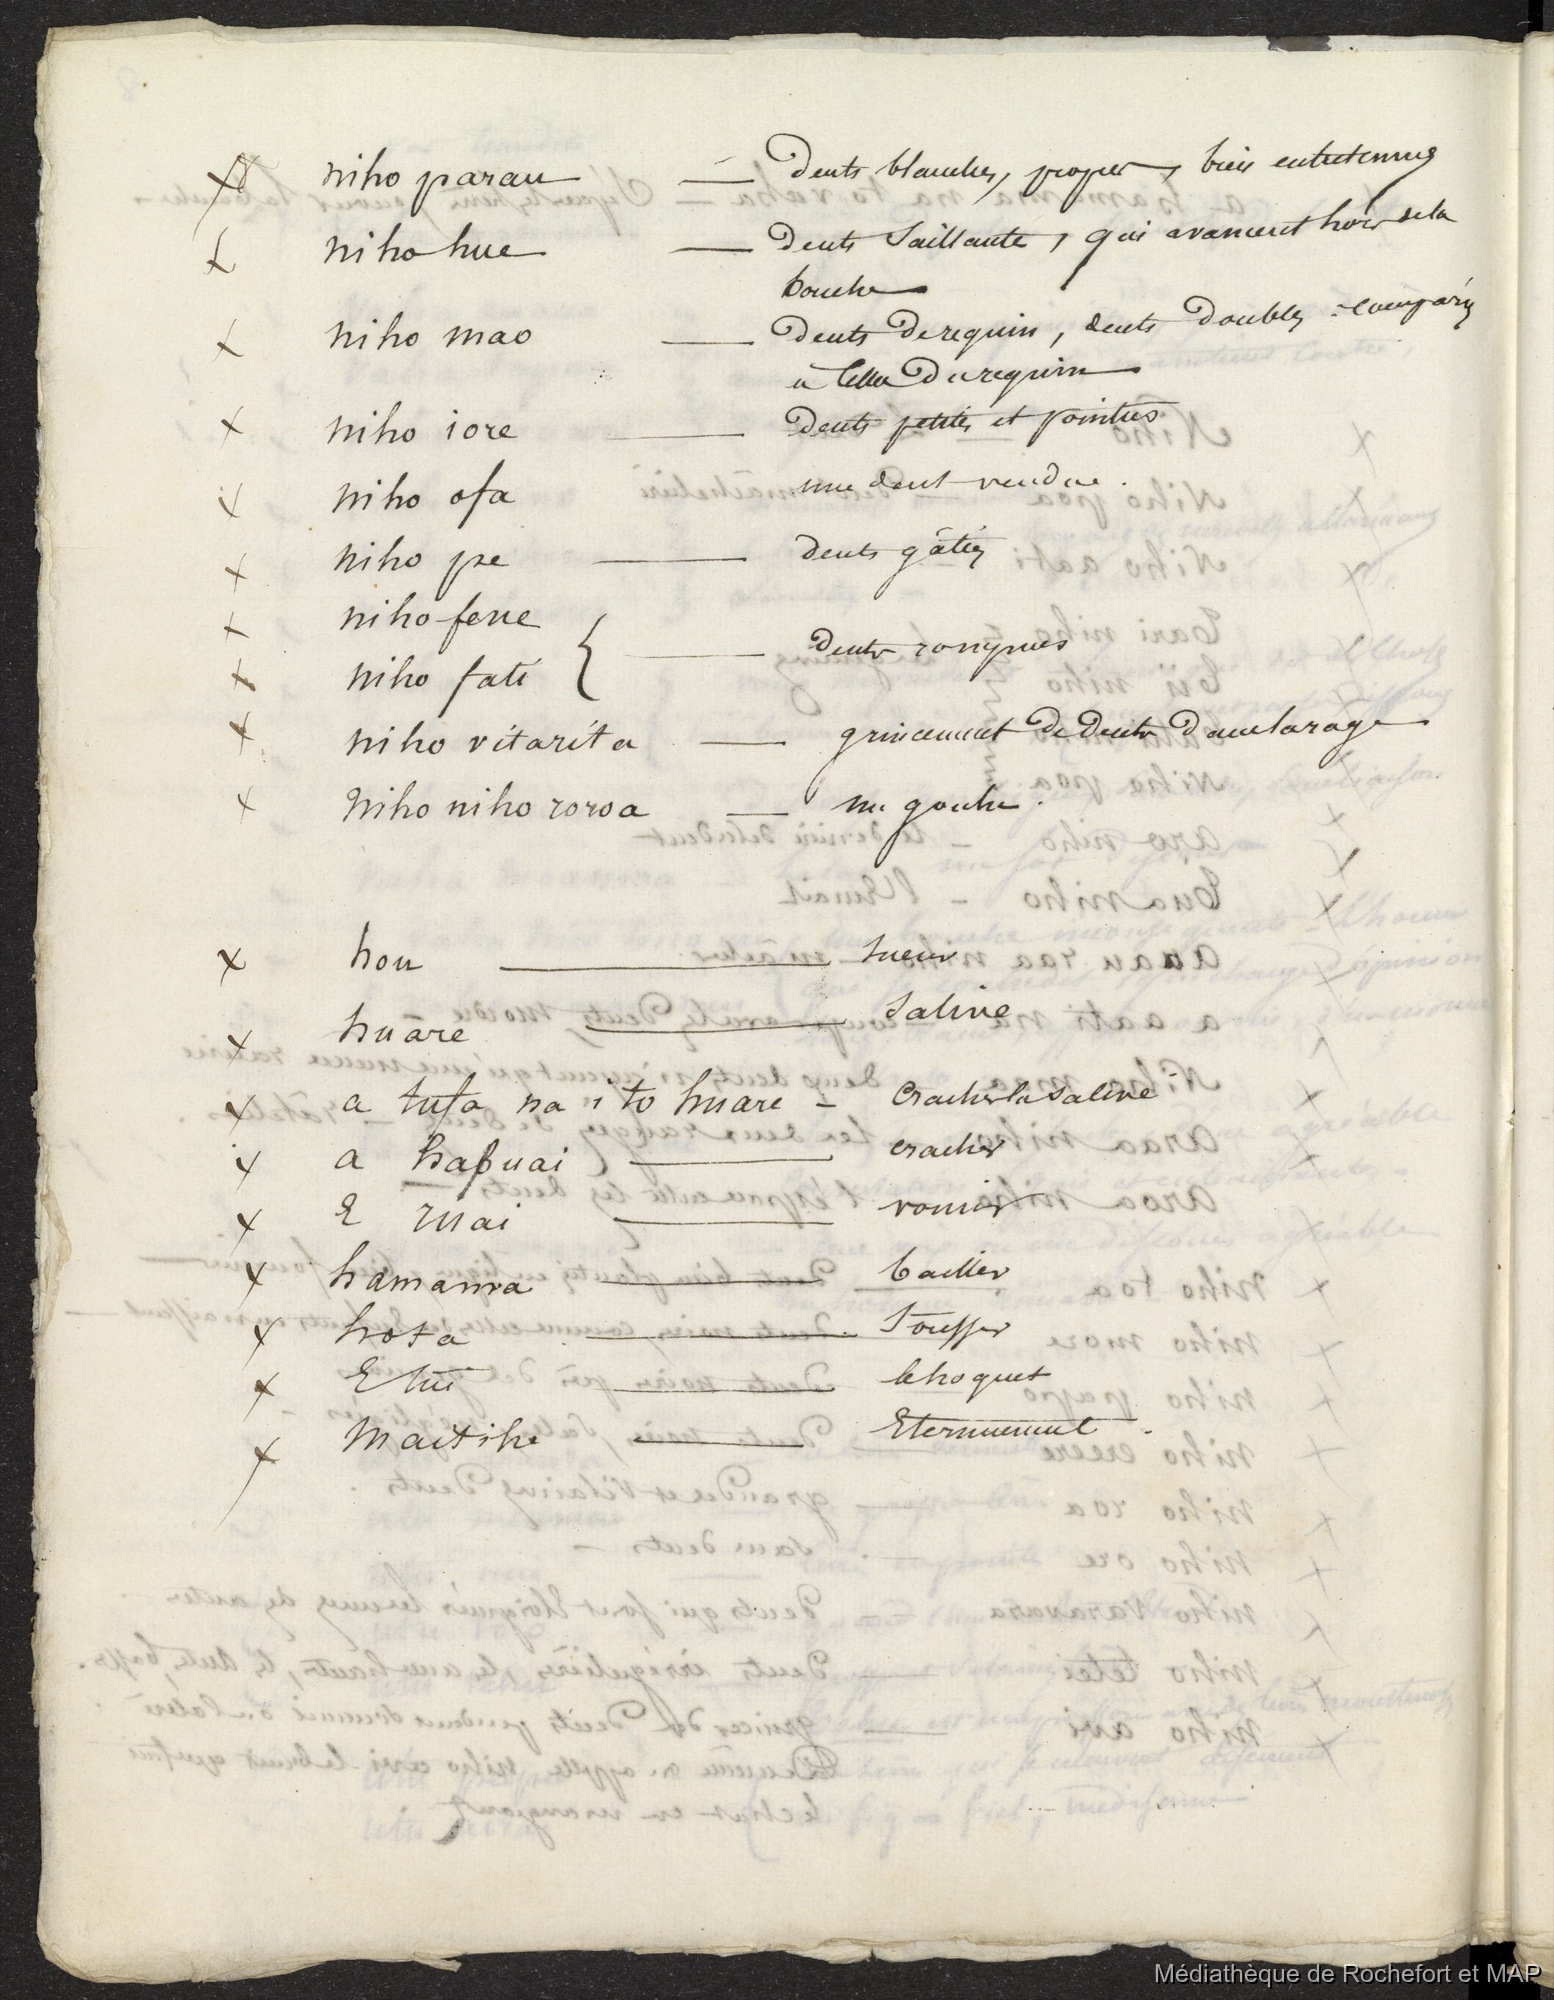 niho parau — Dents blanches, propres, bien entretenues
niho hue — dents Saillante, qui avancent hors de la
bouche
niho mao — Dents De requin, dents Doubles comparées
à celles Du requin
niho iore — Dents petites et pointues
niho ofa une dent vendue.
niho pe — dents gâtées
niho fene
niho fati } — dents rongnues
niho vitarita — grincement De Dents Dans la rage
Niho niho roroa — une gouche.
hou — Sueur
huare — Salive
a tufa na i to huare – Cracher la salive
a hapuai — cracher
E ruai — vomir
hamama — bailler
hota — Tousser
E tui — le hoquet
Maitihe — Eternuement.
Médiathèque de Rochefort et MAP